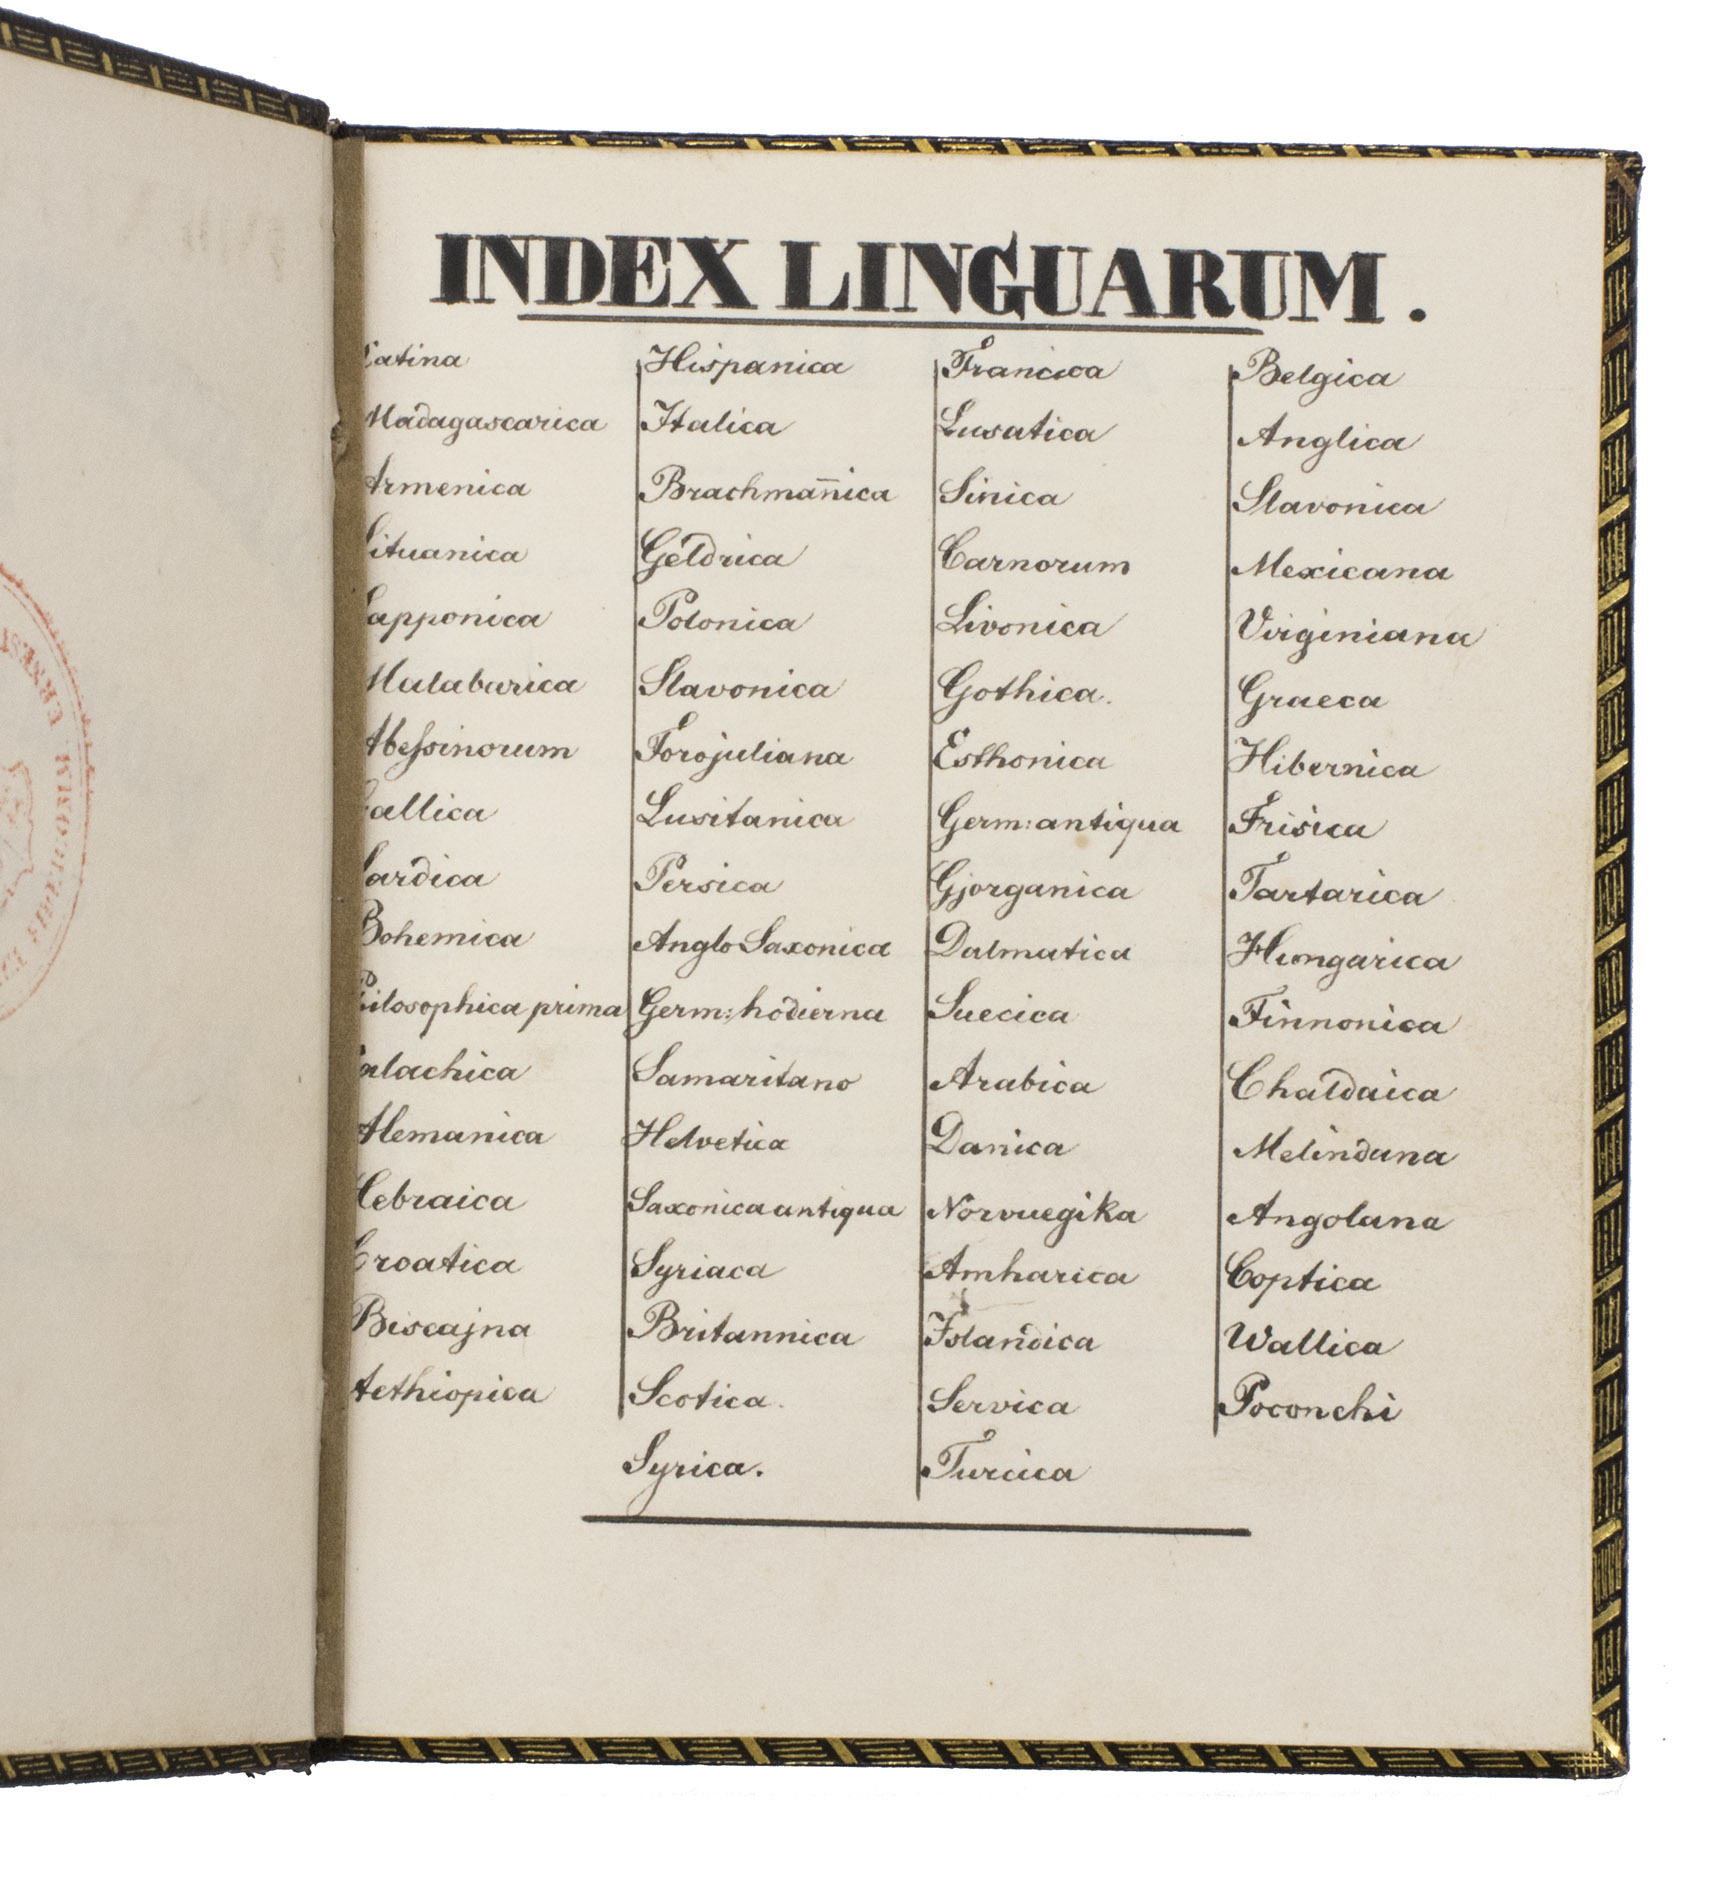 INDEX LINGUARUM.
Latina
Madagascarica
Armenica
Lituanica
Lapponica
Malabarica
Abessinorum
Gallica
Sardica
Bohemica
Philosophica prima
Valachica
Alemanica
Hebraica
Croatica
Biscajna
Aethiopica
Hispanica
Italica
Brachmañica
Geldrica
Polonica
Slavonica
Forojuliana
Lusitanica
Persica
Anglo Saxonica
Germ: hodierna
Samaritano
Helvetica
Saxonica antiqua
Syriaca
Britannica
Scotica.
Syrica.
Francica
Lusatica
Sinica
Carnorum
Livonica
Gothica.
Esthonica
Germ: antiqua
Gjorganica
Dalmatica
Suecica
Arabica
Danica
Norvuegika
Amharica
Islandica
Servica
Turcica
Belgica
Anglica
Slavonica
Mexicana
Virginiana
Graeca
Hibernica
Frisica
Tartarica
Hungarica
Finnonica
Chaldaica
Melindana
Angolana
Coptica
Wallica
Poconchi